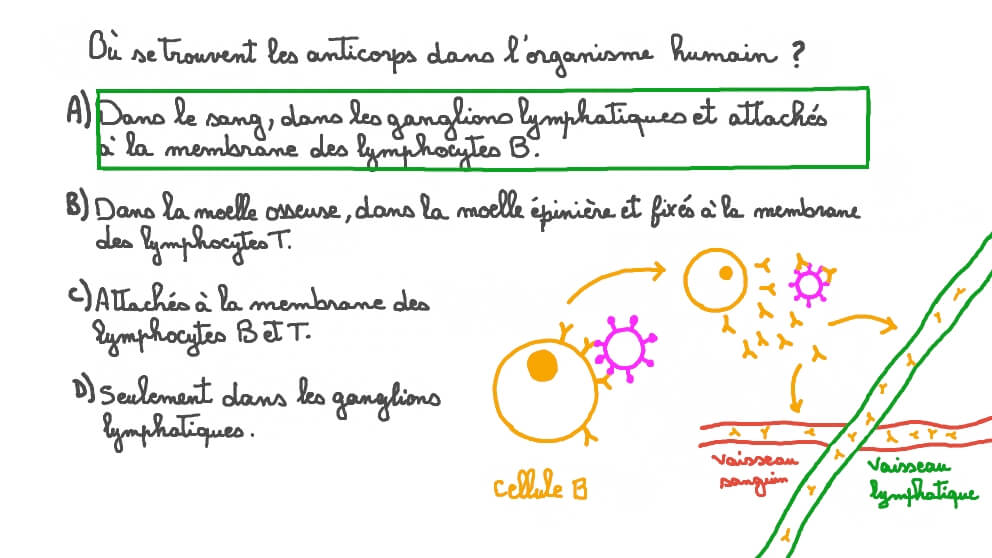 Où se trouvent les anticorps dans l'organisme humain ?
A) Dans le sang, dans les ganglions lymphatiques et attachés
à la membrane des lymphocytes B.
B) Dans la moelle osseuse, dans la moelle épinière et fixés à la membrane
des lymphocytes T.
C) Attachés à la membrane des
lymphocytes B et T.
D) Seulement dans les ganglions
lymphatiques.
Cellule B
Vaisseau
sanguin
Vaisseau
lymphatique